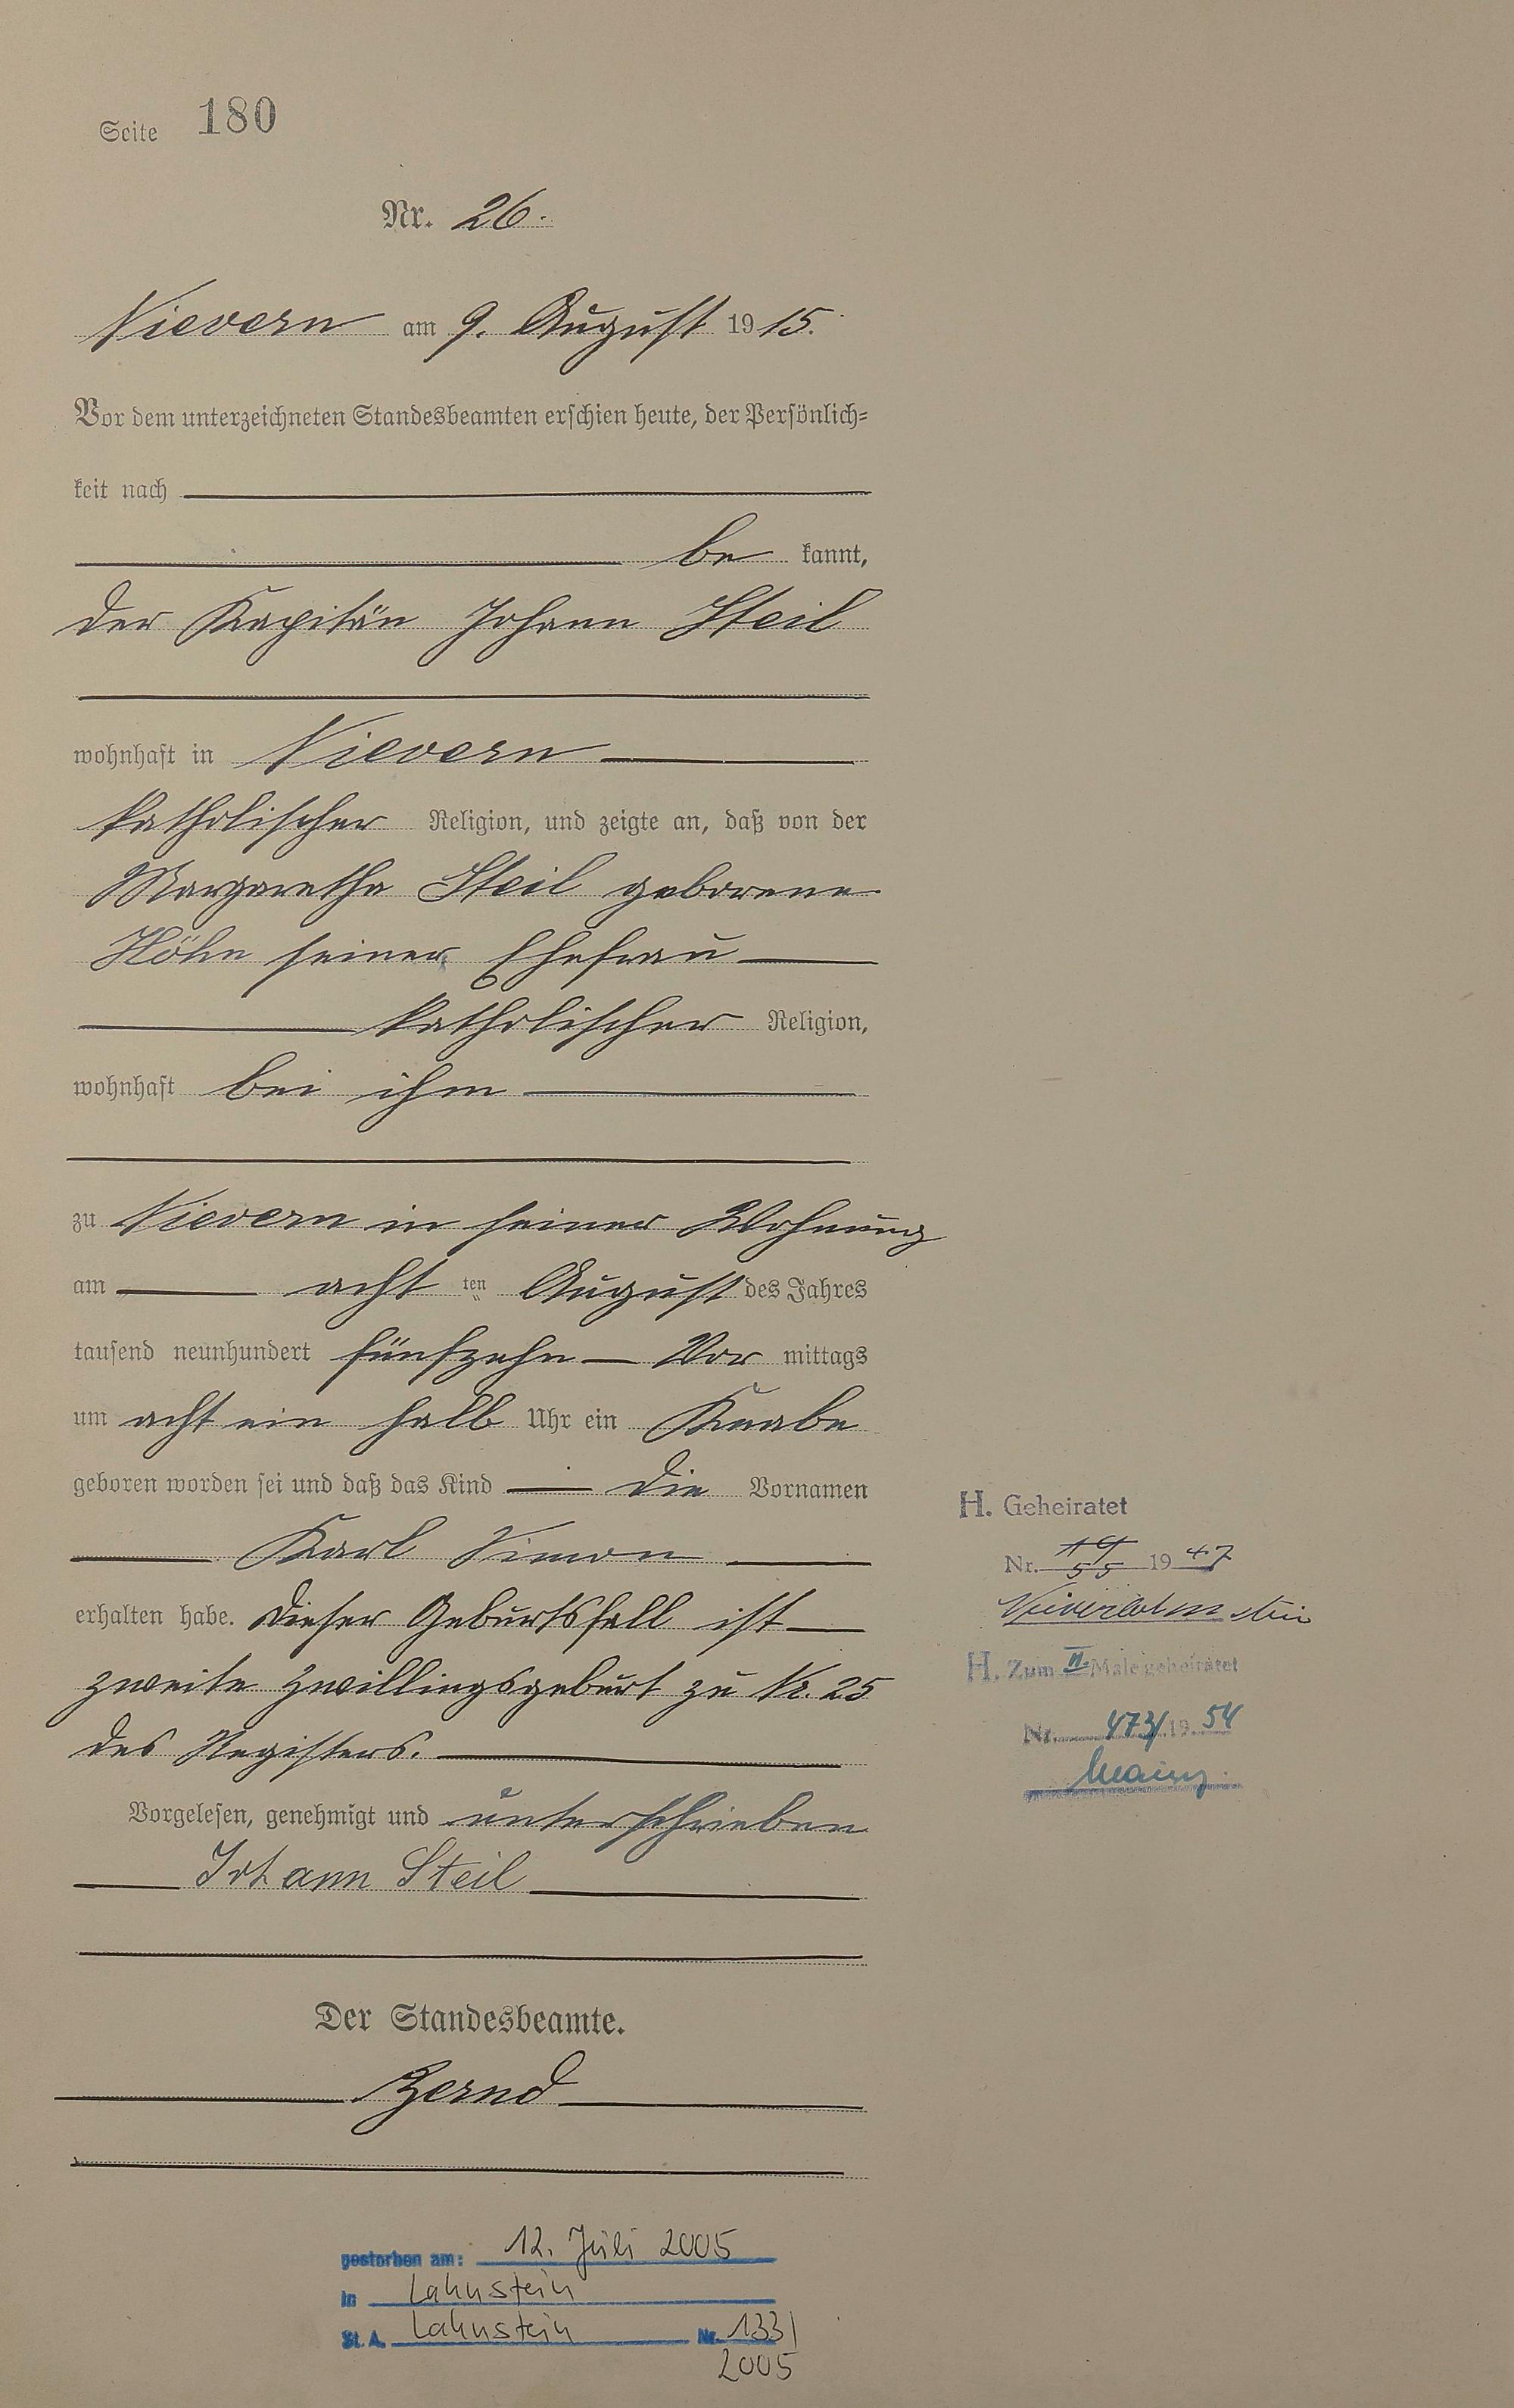 Seite 180
Nr. 26.
Nievern am 9. August 1915.
Vor dem unterzeichneten Standesbeamten erschien heute, der Persönlich-
keit nach
be kannt,
der Kapitän Johann Steil
wohnhaft in Nievern
katholischer Religion, und zeigte an, daß von der
Margaretha Steil geborene
Höhn seiner Ehefrau
katholischer Religion,
wohnhaft bei ihm
zu Nievern in seiner Wohnung
am acht ten August des Jahres
tausend neunhundert fünfzehn Vor mittags
um acht ein halb Uhr ein Knabe
geboren worden sei und daß das Kind die Vornamen
Karl Simon
erhalten habe. Dieser Geburtsfall ist
zweite Zwillingsgeburt zu Nr. 25
des Registers.
Vorgelesen, genehmigt und unterschrieben
Johann Steil
Der Standesbeamte.
Zernd
H. Geheiratet
Nr. 55 1947
H. Zum II. Male geheiratet
Nr. 473/1954
Mainz
gestorben am: 12. Juli 2005
in Lahnstein
St. A. Lahnstein Nr. 133/
2005